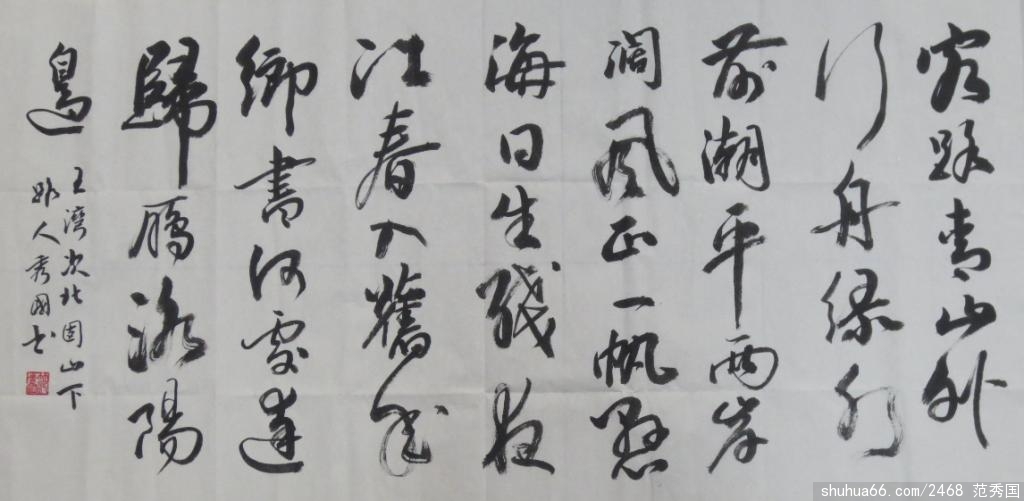 客路青山外
行舟綠水
前潮平兩岸
闊風正一帆懸
海日生殘夜
江春入舊年
鄉書何處達
歸雁洛陽
邊
王灣次北固山下
人秀國书
shuhua66.com/2468 范秀国